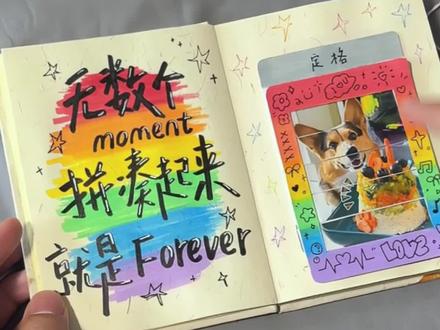 无数个
moment
拼凑起来
就是Forever
定格
XXXX
LOVE